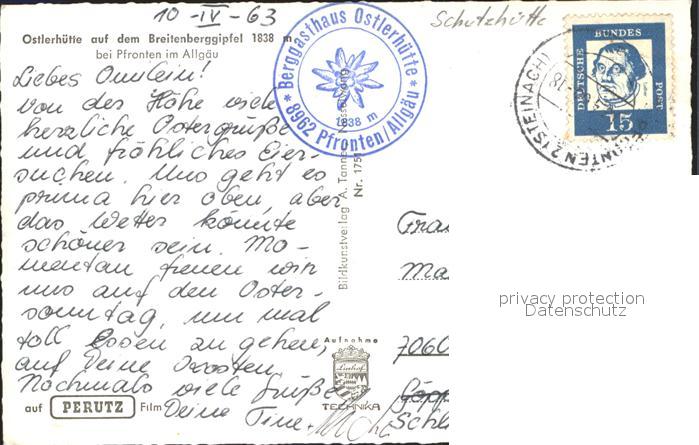 10-IV-63
Schutzhütte
Ostlerhütte auf dem Breitenberggipfel 1838 m
bei Pfronten im Allgäu
* Berggasthaus Ostlerhütte *
1838 m
8962 Pfronten/Allgäu
DEUTSCHE BUNDESPOST
15
PFRONTEN 2 (STEINACH)
Liebes Omilein!
Von der Höhe viele
herzliche Ostergrüße
und fröhliches Eier-
suchen. Uns geht es
prima hier oben, aber
das Wetter könnte
schöner sein. Mo-
mentan freuen wir
uns auf den Oster-
sonntag, um mal
toll Essen zu gehen,
auf Deine Kosten.
Nochmals viele Grüße
Deine Tine.
Bildkunstverlag A. Tanner, Nesselwang
Nr. 1751
Frau
Ma
7060
Göpp
Schl
privacy protection
Datenschutz
Aufnahme
Linhof
TECHNIKA
auf PERUTZ Film